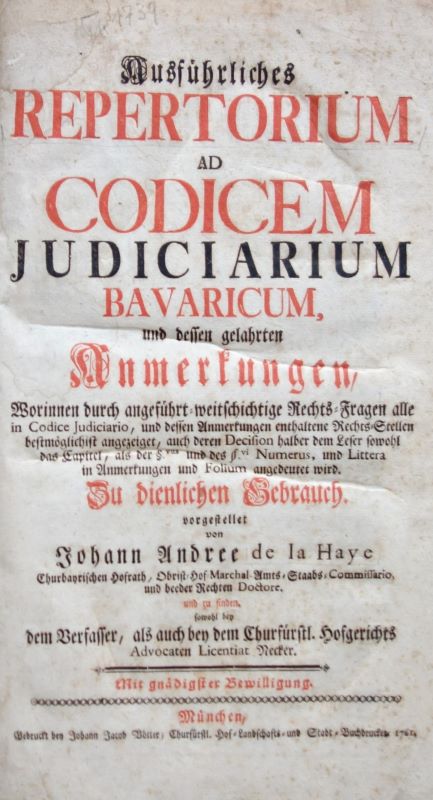 1739
Ausführliches
REPERTORIUM
AD
CODICEM
JUDICIARIUM
BAVARICUM,
und dessen gelahrten
Anmerkungen,
Worinnen durch angeführt-weitschichtige Rechts-Fragen alle
in Codice Judiciario, und dessen Anmerkungen enthaltene Rechts-Stellen
bestmöglichist angezeiget, auch deren Decision halber dem Leser sowohl
das Capitel, als der §.vus und des §.vi Numerus, und Littera
in Anmerkungen und Folium angedeutet wird.
Zu dienlichen Gebrauch.
vorgestellet
von
Johann Andree de la Haye
Churbayrischen Hofrath, Obrist-Hof Marchal-Amts-Staabs-Commissario,
und beeder Rechten Doctore.
und zu finden,
sowohl bey
dem Verfasser, als auch bey dem Churfürstl. Hofgerichts
Advocaten Licentiat Necker.
Mit gnädigster Bewilligung.
München,
Gedruckt bey Johann Jacob Vötter, Churfürstl. Hof-Landschafts-und Stadt-Buchdrucker